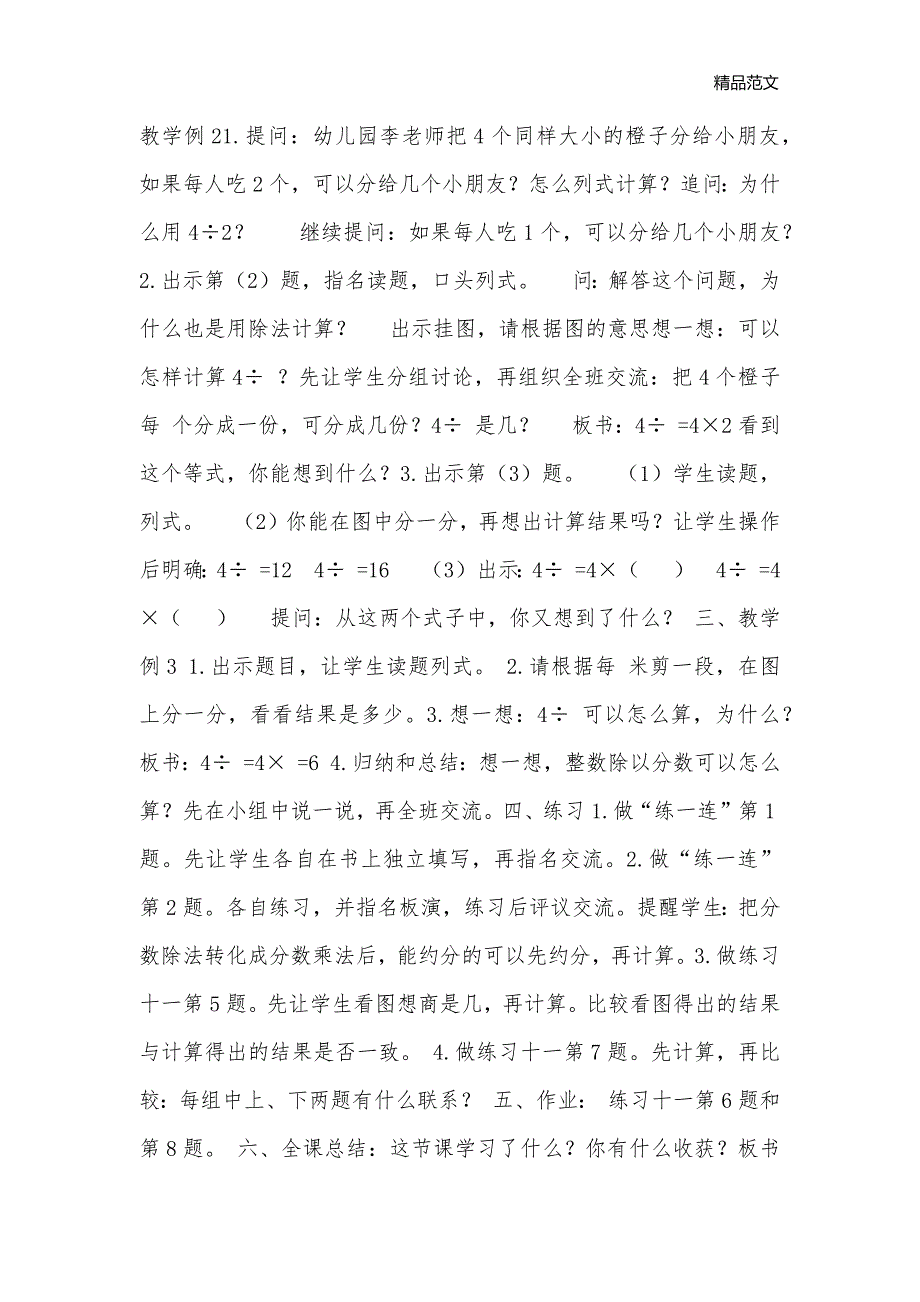 精品范文
教学例21.提问：幼儿园李老师把4个同样大小的橙子分给小朋友，
如果每人吃2个，可以分给几个小朋友？怎么列式计算？追问：为什
么用4÷2？　　继续提问：如果每人吃1个，可以分给几个小朋友？
2.出示第（2）题，指名读题，口头列式。　　问：解答这个问题，为
什么也是用除法计算？　　出示挂图，请根据图的意思想一想：可以
怎样计算4÷ ？先让学生分组讨论，再组织全班交流：把4个橙子
每 个分成一份，可分成几份？4÷ 是几？　　板书：4÷ =4×2看到
这个等式，你能想到什么？3.出示第（3）题。　　（1）学生读题，
列式。　　（2）你能在图中分一分，再想出计算结果吗？让学生操作
后明确：4÷ =12　4÷ =16　　（3）出示：4÷ =4×（　 ）　4÷ =4
×（　 ）　　提问：从这两个式子中，你又想到了什么？ 三、教学
例3 1.出示题目，让学生读题列式。 2.请根据每 米剪一段，在图
上分一分，看看结果是多少。3.想一想：4÷ 可以怎么算，为什么？
板书：4÷ =4× =6 4.归纳和总结：想一想，整数除以分数可以怎么
算？先在小组中说一说，再全班交流。四、练习1.做“练一连”第1
题。先让学生各自在书上独立填写，再指名交流。2.做“练一连”
第2题。各自练习，并指名板演，练习后评议交流。提醒学生：把分
数除法转化成分数乘法后，能约分的可以先约分，再计算。3.做练习
十一第5题。先让学生看图想商是几，再计算。比较看图得出的结果
与计算得出的结果是否一致。 4.做练习十一第7题。先计算，再比
较：每组中上、下两题有什么联系？ 五、作业： 练习十一第6题和
第8题。 六、全课总结：这节课学习了什么？你有什么收获？板书